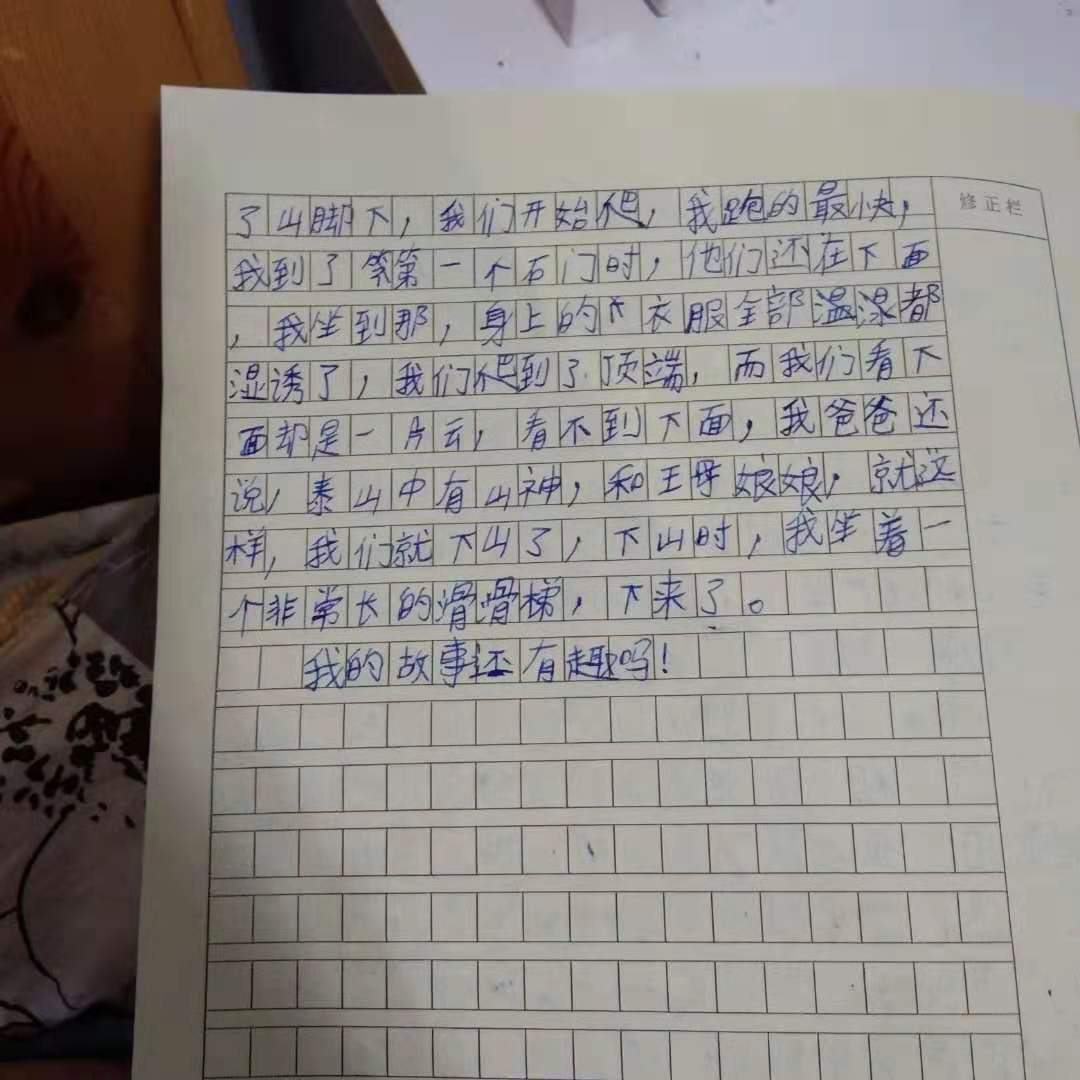 了山脚下，我们开始爬，我跑的最快，
修正栏
我到了第一个石门时，他们还在下面
，我坐到那，身上的衣服全部湿都
湿诱了，我们爬到了顶端，而我们看下
面却是一片云，看不到下面，我爸爸还
说，泰山中有山神，和王母娘娘，就这
样，我们就下山了，下山时，我坐着一
个非常长的滑滑梯，下来了。
我的故事还有趣吗！